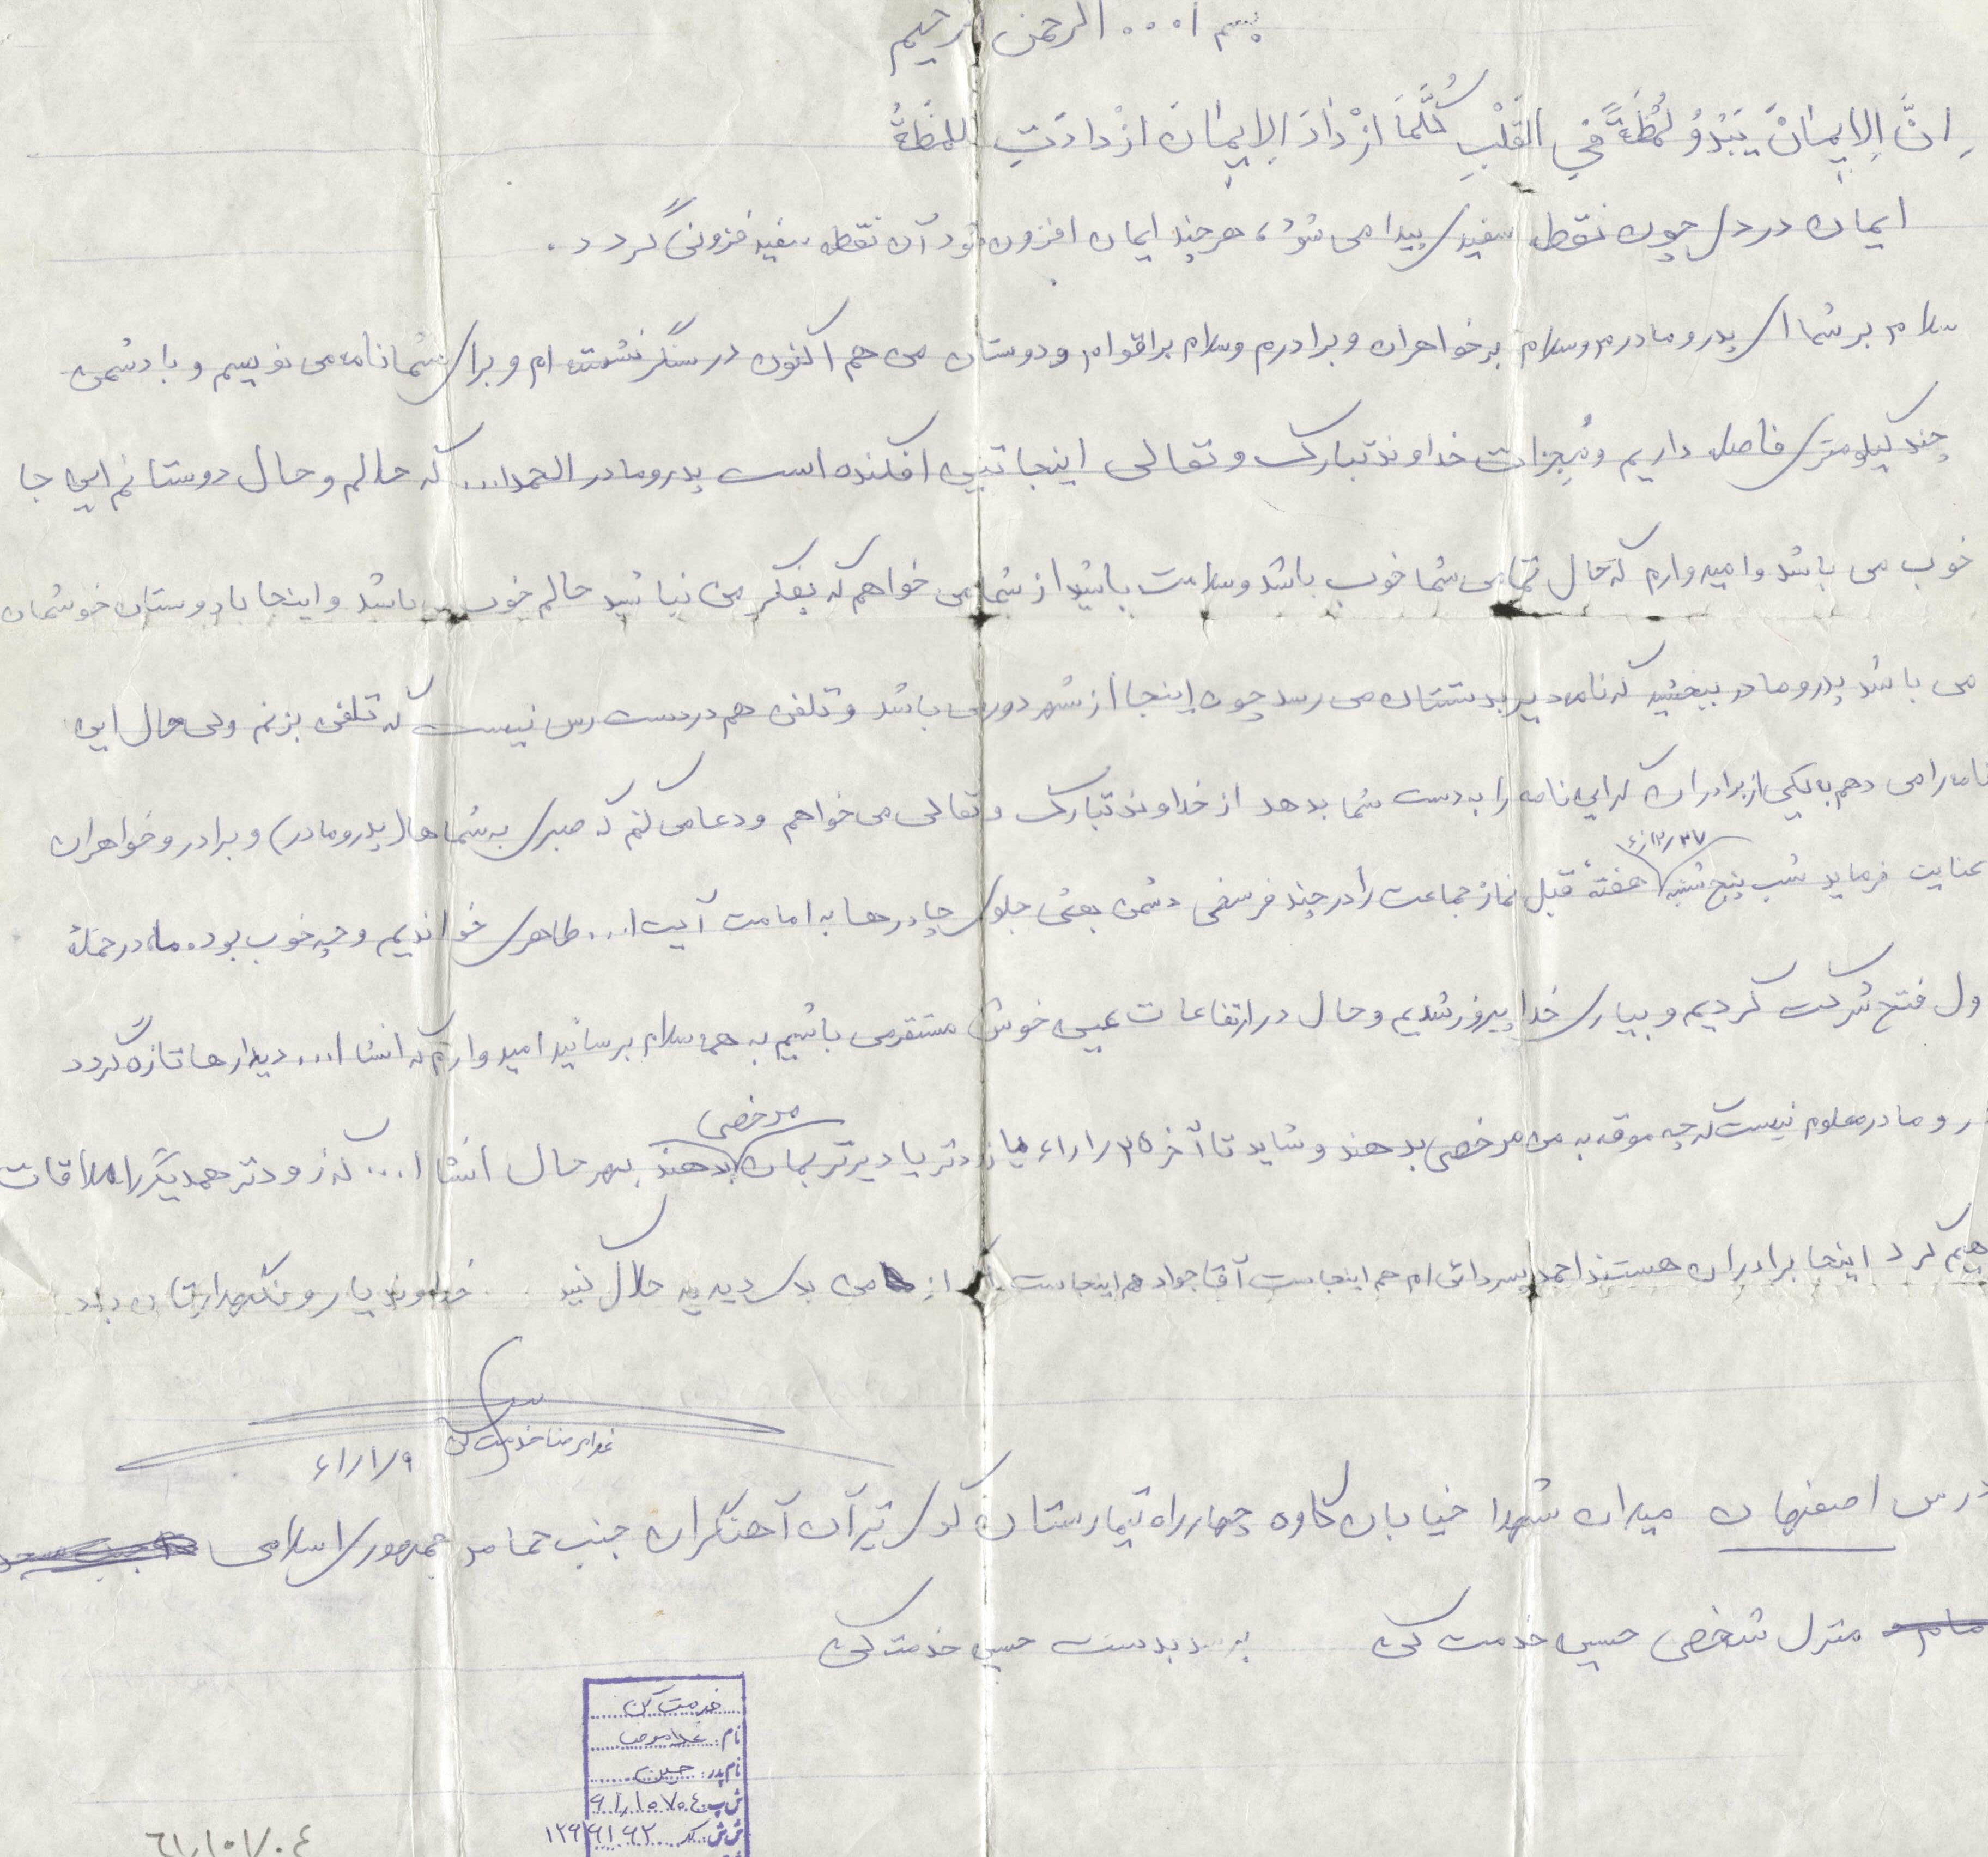 بسم ا... الرحمن الرحیم
اِنَّ الِایمٰانَ یَبْدُوُ لُمْظَةً فِي القَلْبِ کُلَّمَا ازْدٰادَ الِایمٰانَ ازْدادَتِ اللمظَةُ
ایمان در دل چون نقطه سفیدی پیدا می شود، هر چند ایمان افزون شود آن نقطه سفید فزونی گردد.
سلام بر شما ای پدر و مادرم و سلام بر خواهران و برادرم و سلام بر اقوام و دوستان من هم اکنون در سنگر نشسته ام و برای شما نامه می نویسم و با دشمن
چند کیلومتری فاصله داریم و معجزات خداوند تبارک و تعالی اینجا افکنده است پدر و مادر الحمدا... که حالم و حال دوستانم این جا
خوب می باشد و امیدوارم که حال تمامی شما خوب باشد و سلامت باشید از شما می خواهم که بفکر من نباشید حالم خوب می باشد و اینجا با دوستان خوشمان
می باشد پدر و مادر ببخشید که نامه دیر بدستتان می رسد چون اینجا از شهر دور می باشد و تلفن هم در دست رس نیست که تلفن بزنم ولی حال این
نامه را می دهم به یکی از برادران که این نامه را به دست شما بدهد از خداوند تبارک و تعالی می خواهم و دعا می کنم که صبری به شماها (پدر و مادر) و برادر و خواهران
عنایت فرماید شب پنج شنبه هفتهٔ قبل نماز جماعت را در چند فرسخی دشمن یعنی جلوی چادرها به امامت آیت ا... طاهری خواندیم و چه خوب بود. ما در حملهٔ
ول فتح شرکت کردیم و بیاری خدا پیروز شدیم و حال در ارتفاعات عین خوش مستقر می باشیم به همه سلام برسانید امیدوارم که انشا ا... دیدارها تازه گردد
ر و مادر معلوم نیست که چه موقه به من مرخصی بدهند و شاید تا آخر ۶۱/۱/۲۵ یا زودتر یا دیرتر بمان مرخصی بدهند بهر حال انشا ا... که زودتر همدیگر را ملاقات
هیم کرد اینجا برادران هستند احمد پسر دائی ام هم اینجاست آقا جواد هم اینجاست از من بدی دیدید حلال کنید خداوند یار و نگهدارتان باد
غلامرضا خدمت کن
۶۱/۱/۹
درس اصفهان میدان شهدا خیابان کاوه چهارراه تیمارستان کوی تیرآن آهنگران جنب حمام جمهوری اسلامی
منزل شخصی حسین خدمت کن برسد بدست حسین خدمت کن
خدمت کن
نام: غلامرضا
نام پدر: حسین
ش پ: ۶۱/۱۰۷۰٤
٦١/١٠١/٠٤